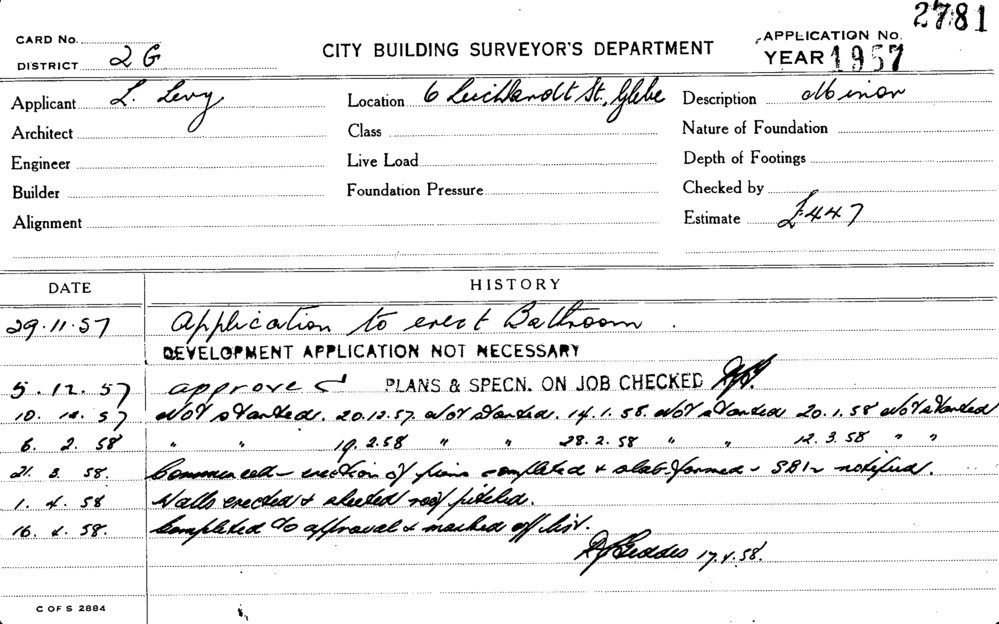 2781
CARD No.
CITY BUILDING SURVEYOR'S DEPARTMENT
APPLICATION No.
DISTRICT 2G
YEAR 1957
Applicant L. Levy
Location 6 Leichhardt St, Glebe
Description Minor
Architect
Class
Nature of Foundation
Engineer
Live Load
Depth of Footings
Builder
Foundation Pressure
Checked by
Alignment
Estimate £447
DATE
HISTORY
29.11.57 Application to erect Bathroom.
DEVELOPMENT APPLICATION NOT NECESSARY
5.12.57 approved PLANS & SPECN. ON JOB CHECKED
10.12.57 Not started. 20.12.57. Not started. 14.1.58. Not started 20.1.58 Not started
6.2.58 " " 19.2.58 " " 28.2.58 " " 12.3.58 " "
21.3.58. Commenced - erection of piers completed & slab formed - notified.
1.4.58 Walls erected & roof pitched.
16.4.58. Completed approval & marked off list.
Geddes 17.4.58.
C OF S 2884